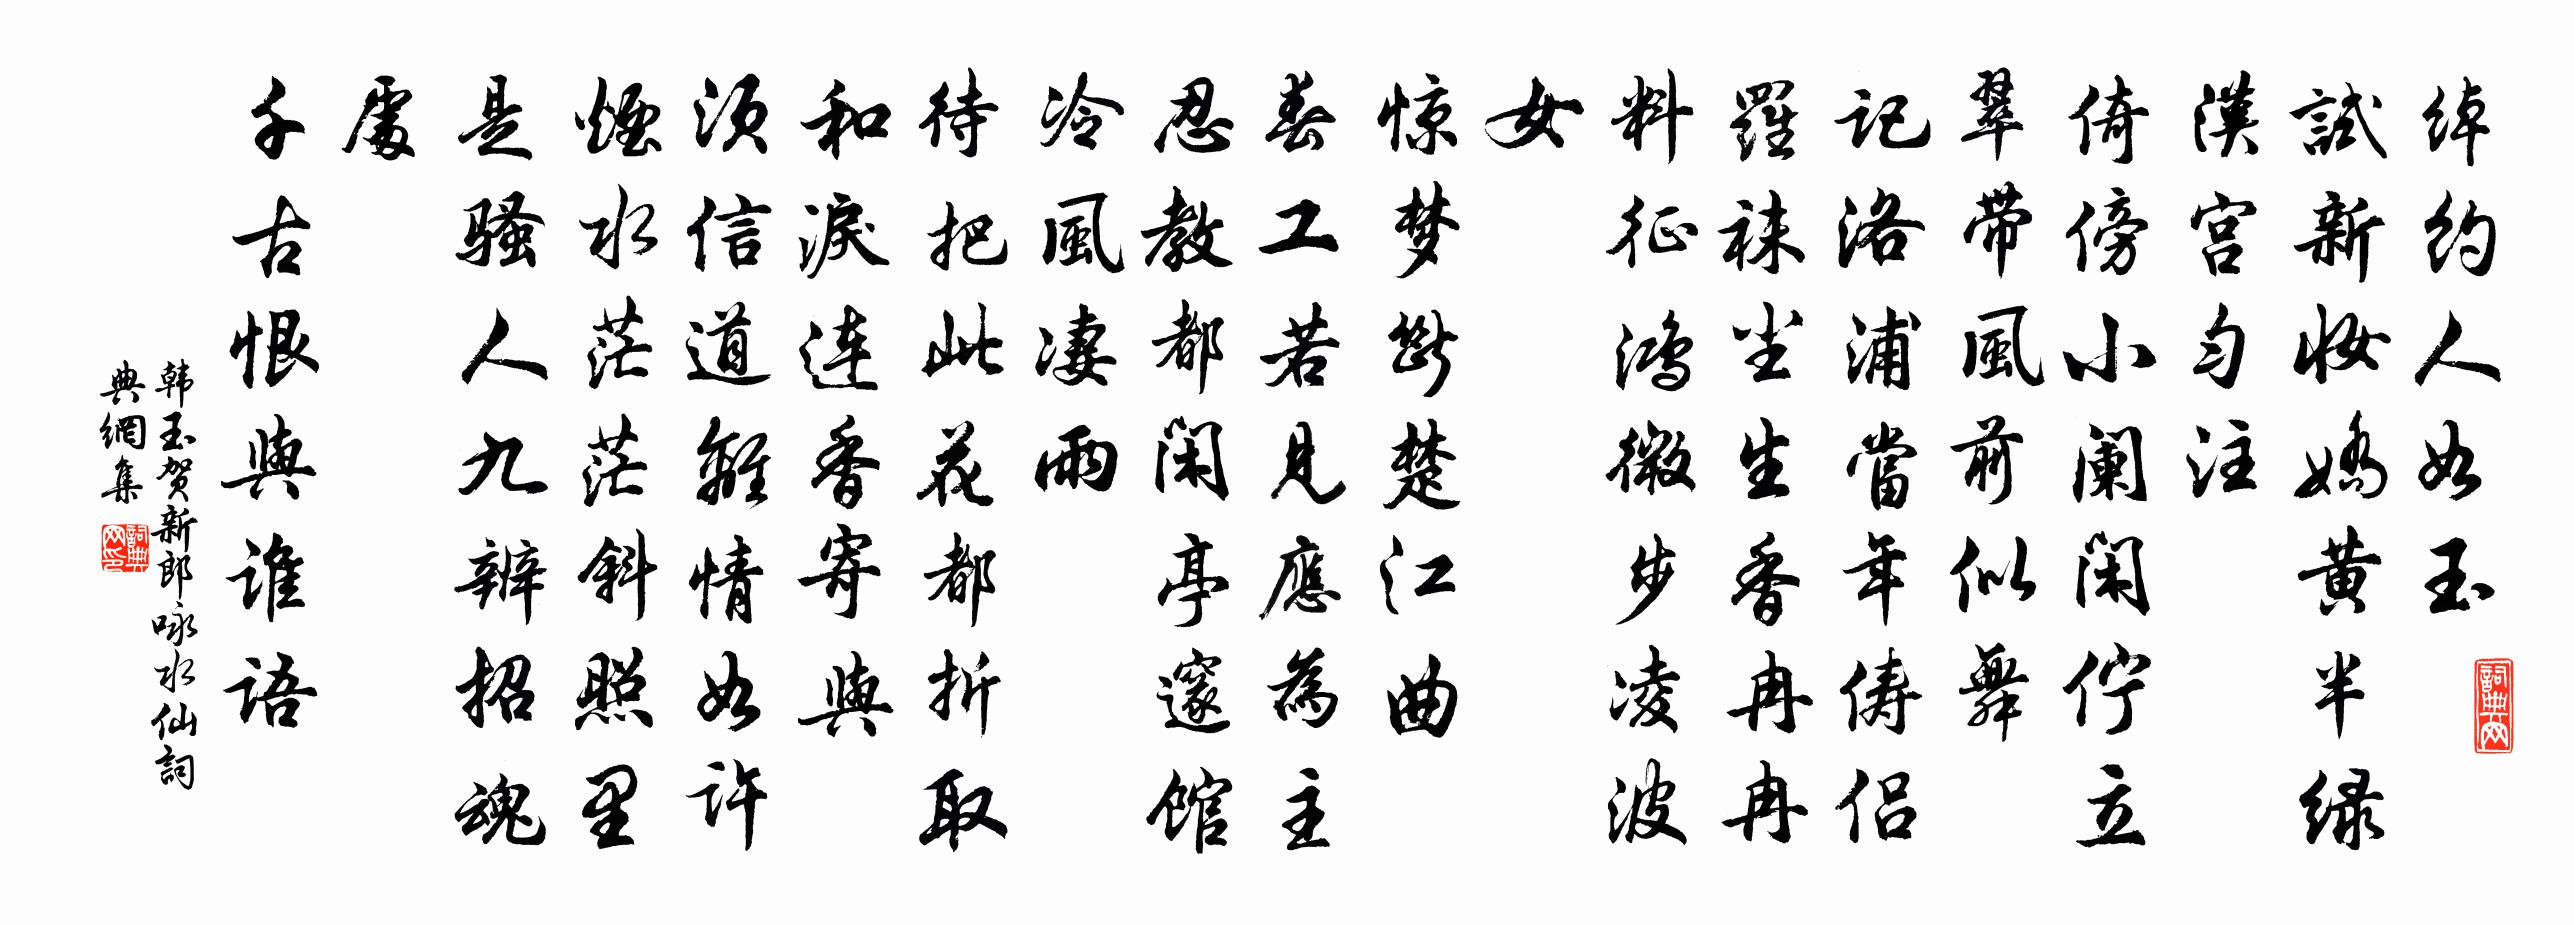 绰约人如玉
試新妆嬌黄半绿
漢宫匀注
倚傍小阑闲佇立
翠带風前似舞
记洛浦當年俦侣
羅袜尘生香冉冉
料征鸿微步凌波
女
惊梦断楚江曲
春工若見應為主
忍教都闲亭邃馆
冷風凄雨
待把此花都折取
和淚连香寄與
须信道離情如许
煙水茫茫斜照里
是骚人九辨招魂
處
千古恨與谁语
韩玉贺新郎咏水仙詞
典網集
詞典网
詞典网印